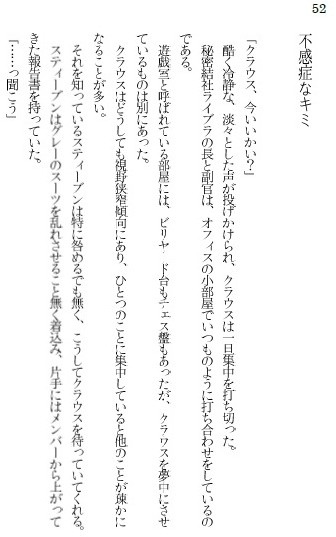 52
不感症なキミ
「クラウス、今いいかい?」
酷く冷静な、淡々とした声が投げかけられ、クラウスは一旦集中を打ち切った。
秘密結社ライブラの長と副官は、オフィスの小部屋でいつものように打ち合わせをしているの
である。
遊戯室と呼ばれている部屋には、ビリヤード台もチェス盤もあったが、クラウスを夢中にさせ
ているものは別にあった。
クラウスはどうしても視野狭窄傾向にあり、ひとつのことに集中していると他のことが疎かに
なることが多い。
それを知っているスティーブンは特に咎めるでも無く、こうしてクラウスを待っていてくれる。
スティーブンはグレーのスーツを乱れさせること無く着込み、片手にはメンバーから上がって
きた報告書を持っていた。
「……っ聞こう」